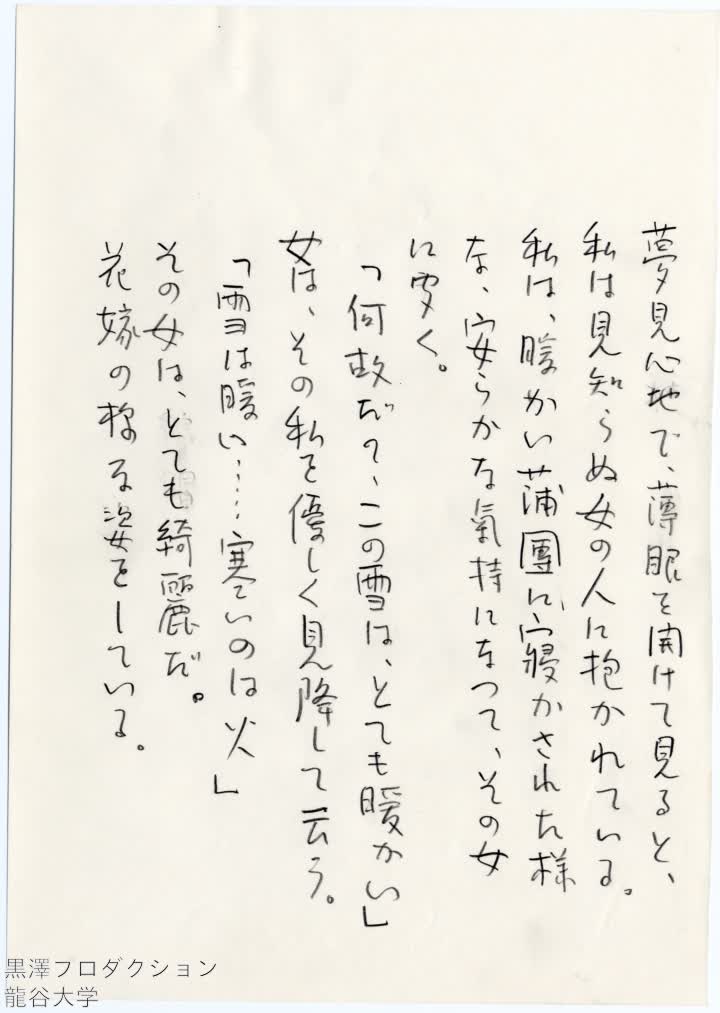 夢見心地で、薄眼を開けて見ると、
私は見知らぬ女の人に抱かれている。
私は、暖かい蒲團に寝かされた様
な、安らかな氣持になって、その女
に聞く。
「何故だ?、この雪は、とても暖かい」
女は、その私を優しく見降して云う。
「雪は暖い……寒いのは火」
その女は、とても綺麗だ。
花嫁の様な姿をしている。
黒澤プロダクション
龍谷大学